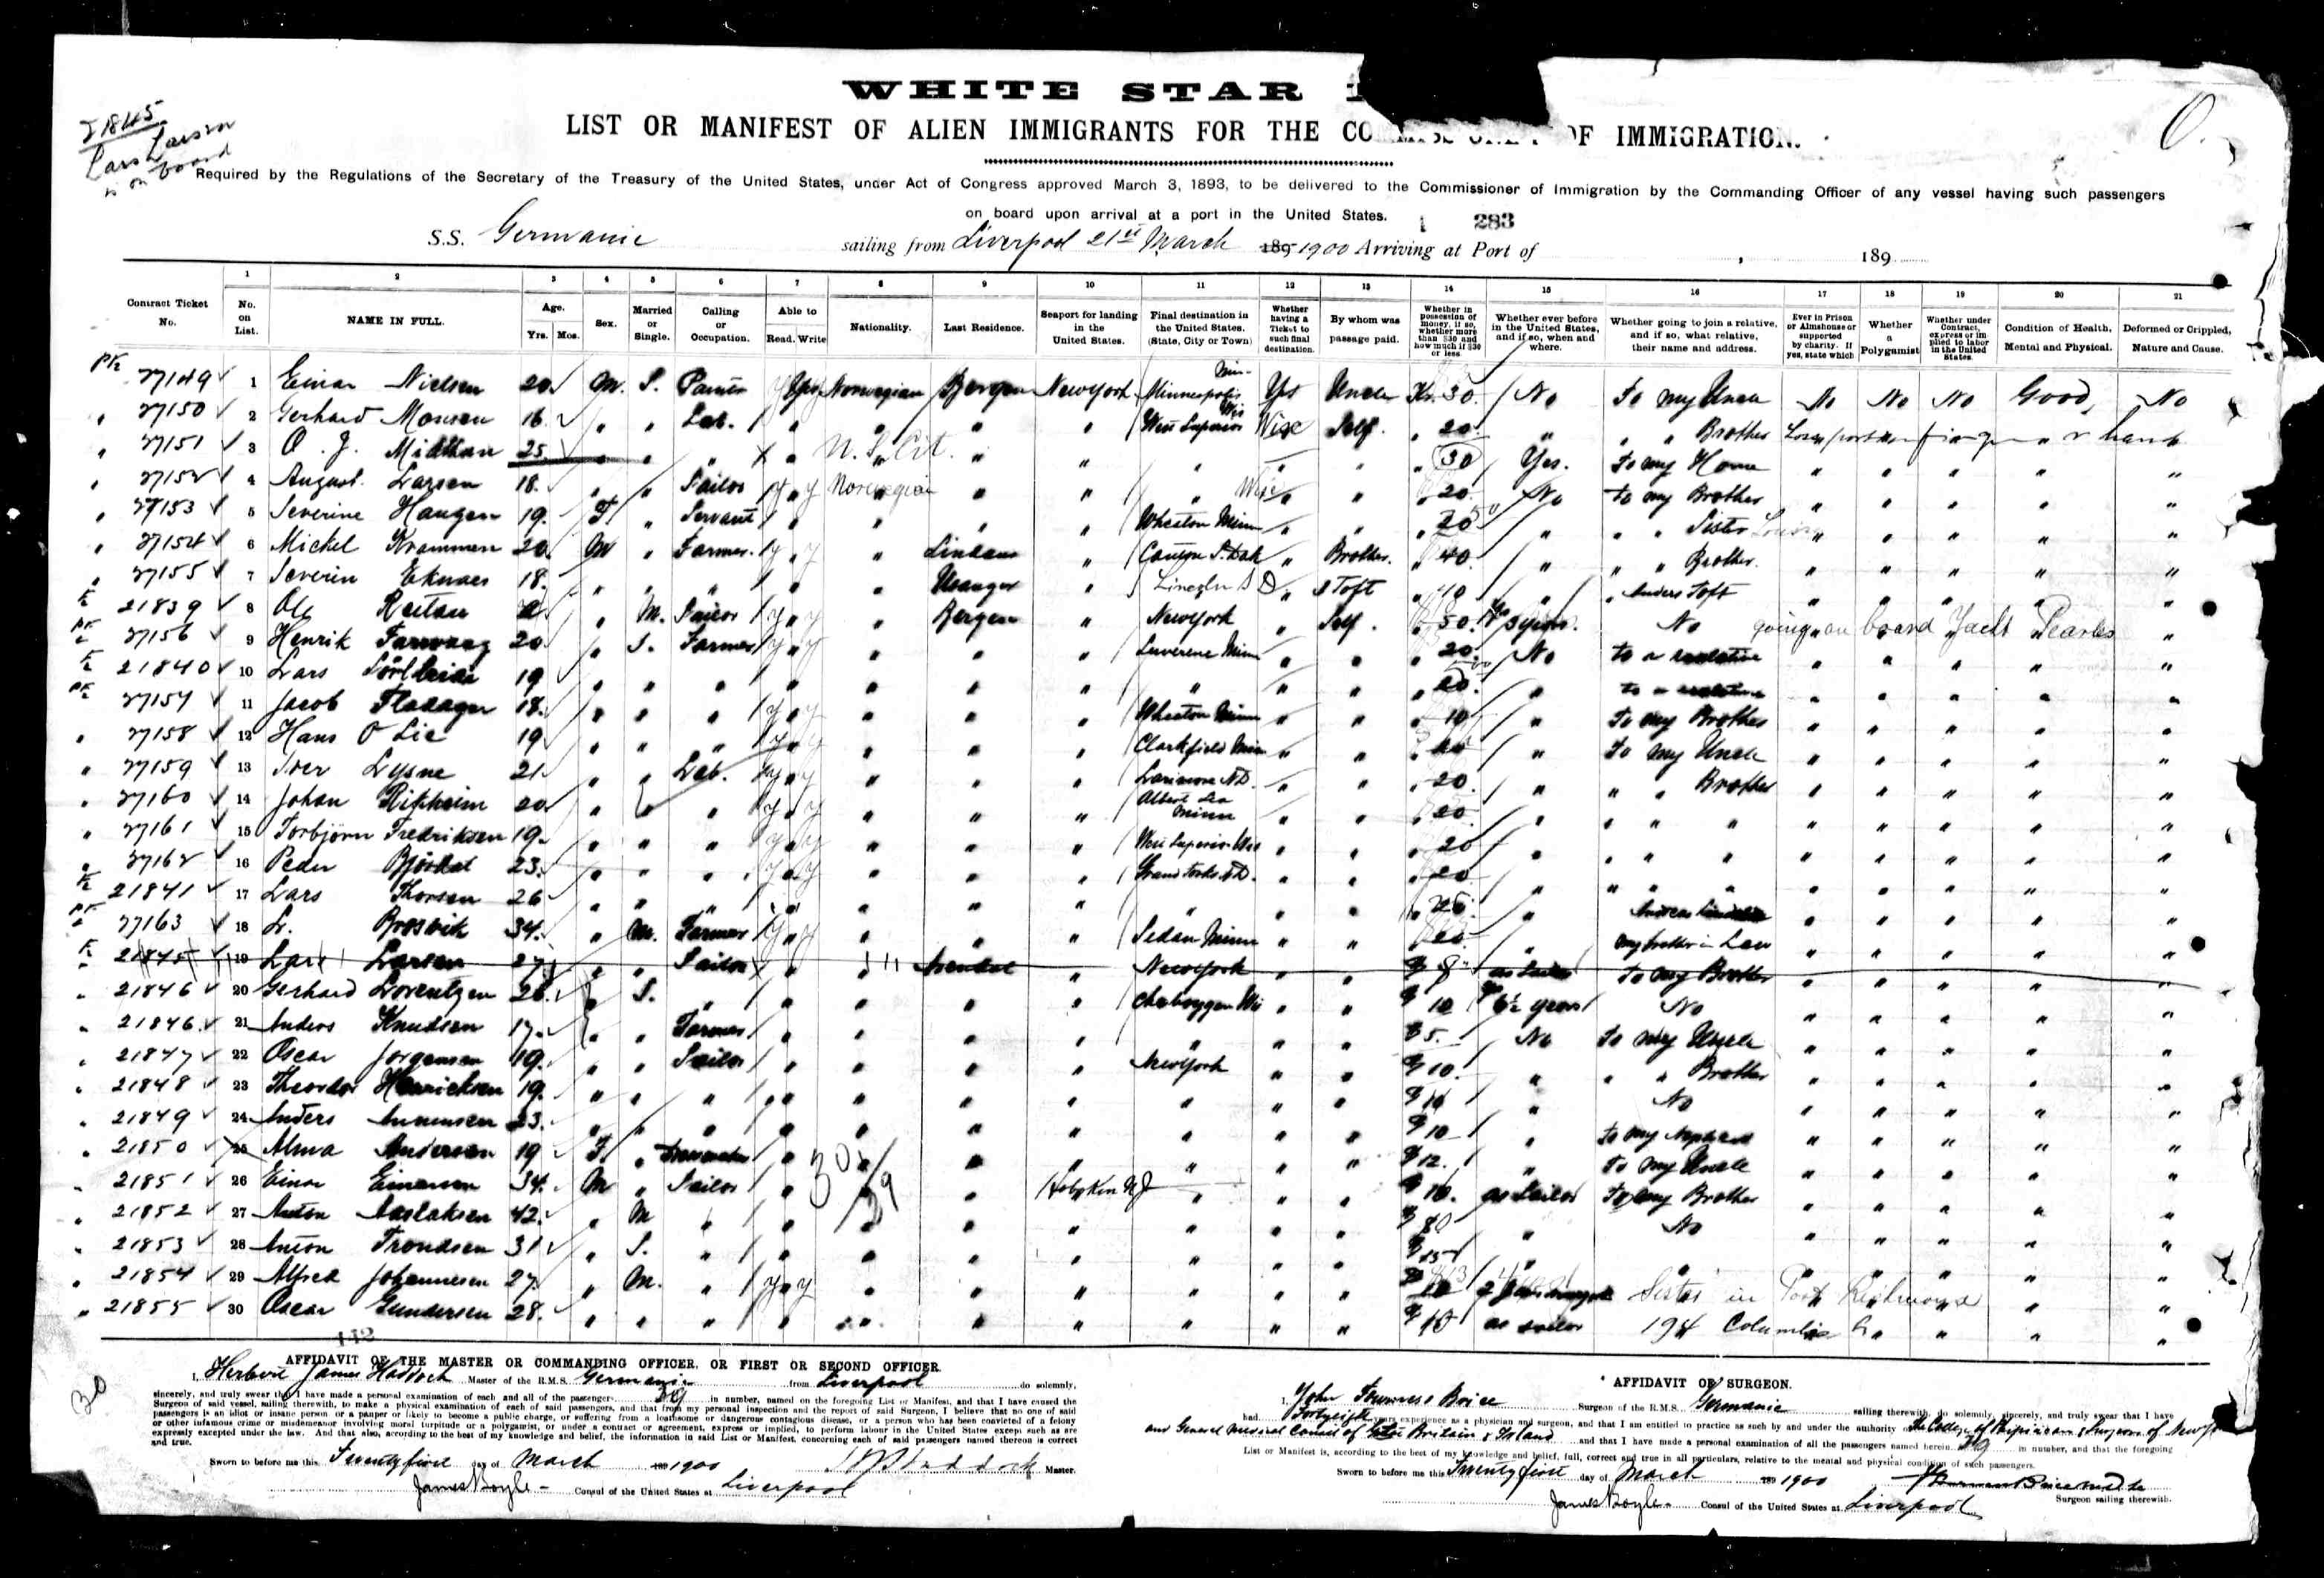 21845
Lars Larsen
is on board
WHITE STAR
LIST OR MANIFEST OF ALIEN IMMIGRANTS FOR THE COMMISSIONER OF IMMIGRATION.
O.
Required by the Regulations of the Secretary of the Treasury of the United States, under Act of Congress approved March 3, 1893, to be delivered to the Commissioner of Immigration by the Commanding Officer of any vessel having such passengers
on board upon arrival at a port in the United States.
283
S.S. Germanic sailing from Liverpool 21st March 189 1900 Arriving at Port of , 189
1 2 3 4 5 6 7 8 9 10 11 12 13 14 15 16 17 18 19 20 21
Contract Ticket No. No. on List. NAME IN FULL. Age. Yrs. Mos. Sex. Married or Single. Calling or Occupation. Able to Read. Write Nationality. Last Residence. Seaport for landing in the United States. Final destination in the United States. (State, City or Town) Whether having a Ticket to such final destination. By whom was passage paid. Whether in possession of money, if so, whether more than $30 and how much if $30 or less Whether ever before in the United States, and if so, when and where. Whether going to join a relative, and if so, what relative, their name and address. Ever in Prison or Almshouse or supported by charity. If yes, state which Whether a Polygamist Whether under Contract, express or implied to labor in the United States. Condition of Health, Mental and Physical. Deformed or Crippled, Nature and Cause.
27149 1 Einar Nielsen 20 M. S. Yes Norwegian Bergen New York Minneapolis Min. Yes Uncle Kr. 30 No to my Uncle No No No Good No
27150 2 Gerhard Monsen 16 " " Lab. " " " " West Superior Wis Self. " 20 " " " Brother
27151 3 O. J. Midthan 25 " " " " U.S. Cit. " " " " " " 30 Yes. to my Home " " " " "
27152 4 August Larsen 18 " " Sailor y y Norwegian " " " " " " 20 No to my Brother " " " " "
27153 5 Severine Haugen 19 F " Servant " " " " Wheaton Minn " " 20 " " " Sister " " " " "
27154 6 Mickel Krammen 20 M " Farmer y y " Lindaas " Canton S. Dak " Brother " 40 " " " Brother " " " " "
27155 7 Severin Eknaes 18 " " " " " " Lincoln S D " A Toft " 10 " " Anders Toft " " " " "
21839 8 Ole " M. Sailor y y " Bergen " New York " Self. " 50 Yes 3 years. No going on board Yacht "
27156 9 Henrik 20 " S. Farmer y y " " " Luverene Minn " " " 20 No to a relative " " " " "
21840 10 Lars 19 " " " " " " " " " " " 20 " to a relative " " " " "
27157 11 Jacob Fladager 18 " " " y y " " " Wheaton Minn " " " 10 " to my Brother " " " " "
27158 12 Hans O Lie 19 " " " y y " " " Clarkfield Minn " " " " to my Uncle " " " " "
27159 13 Iver Lysne 21 " " Lab. y y " " " Larimore N.D. " " " 20 " " " Brother " " " " "
27160 14 Johan 20 " " y y " " " Albert Lea Minn " " " 20 " " " " " " " " "
27161 15 Torbjörn Fredriksen 19 " " " y y " " " West Superior Wis " " " 20 " " " " " " " " "
27162 16 Peder 23 " " " y y " " " Grand Forks N.D. " " " 20 " " " " " " " " "
21841 17 Lars Thorsen 26 " " " " " " " " " " " 25 " Andreas " " " " "
27163 18 L. Brosvik 34 " M. Farmer y y " " " Sedan Minn " " " " my brother in Law " " " " "
21845 19 Lars Larsen 27 " " Sailor " " Arendal " New York " " $ as Sailor to my Brother " " " " "
21846 20 Gerhard Lorentzen 26 " S. " " " " " Cheboygan Wis " " $ 10 6½ years No " " " " "
21846 21 Anders Knudsen 17 " " Farmer " " " " " " " $ 5. No to my Uncle " " " " "
21847 22 Oscar Jorgensen 19 " " Sailor " " " " New York " " $ 10. " " " Brother " " " " "
21848 23 Theodor Henricksen 19 " " " " " " " " " " $ 10 " No " " " " "
21849 24 Anders 23 " " " " " " " " " " $ 10 " to my " " " " "
21850 25 Alma Andersen 19 F. " " " " " " " " $ 12. " to my Uncle " " " " "
21851 26 Einar Einersen 34 M " Sailor " " " Hoboken N J " " " $ 10. as Sailor to my Brother " " " " "
21852 27 Anton Aaslaksen 42 " M " " " " " " " " $ 80 " No " " " " "
21853 28 Anton Trondsen 31 " S. " " " " " " " " $ 15 " " " " " " "
21854 29 Alfred Johannesen 27 " M. " y y " " " " " " $ 10 Sister in Port Richmond " "
21855 30 Oscar Gundersen 28 " " " " " " " " " " $ 10 as sailor 194 Columbia " " " "
30
AFFIDAVIT OF THE MASTER OR COMMANDING OFFICER, OR FIRST OR SECOND OFFICER.
I, Herbert James Haddock Master of the R.M.S. Germanic from Liverpool do solemnly,
sincerely, and truly swear that I have made a personal examination of each and all of the passengers 30 in number, named on the foregoing List or Manifest, and that I have caused the
Surgeon of said vessel, sailing therewith, to make a physical examination of each of said passengers, and that from my personal inspection and the report of said Surgeon, I believe that no one of said
passengers is an idiot or insane person, or a pauper or likely to become a public charge, or suffering from a loathsome or dangerous contagious disease, or a person who has been convicted of a felony
or other infamous crime or misdemeanor involving moral turpitude or a polygamist, or under a contract or agreement, express or implied, to perform labour in the United States except such as are
expressly excepted under the law. And that also, according to the best of my knowledge and belief, the information in said List or Manifest, concerning each of said passengers named thereon is correct
and true.
Sworn to before me this Twenty first day of March 1900 H J Haddock Master.
James Boyle Consul of the United States at Liverpool
AFFIDAVIT OF SURGEON.
I, John Surgeon of the R.M.S. Germanic sailing therewith, do solemnly, sincerely, and truly swear that I have
had Forty eight years experience as a physician and surgeon, and that I am entitled to practice as such by and under the authority
and General Medical Council of Great Britain & Ireland and that I have made a personal examination of all the passengers named herein 30 in number, and that the foregoing
List or Manifest is, according to the best of my knowledge and belief, full, correct and true in all particulars, relative to the mental and physical condition of such passengers.
Sworn to before me this Twenty first day of March 189 1900
James Boyle Consul of the United States at Liverpool Surgeon sailing therewith.